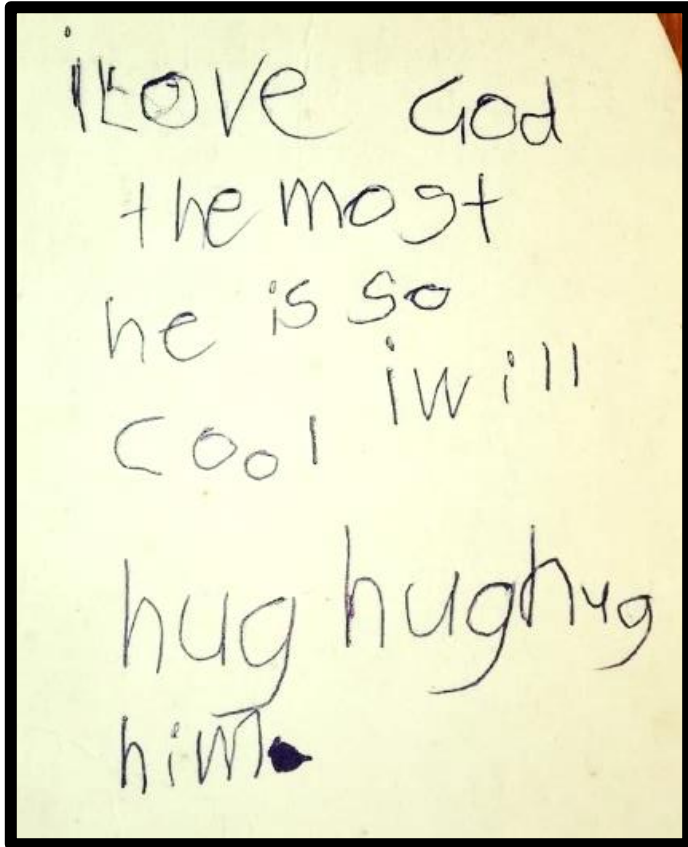 i Love God
the most
he is so
cool i will
hug hug hug
him.